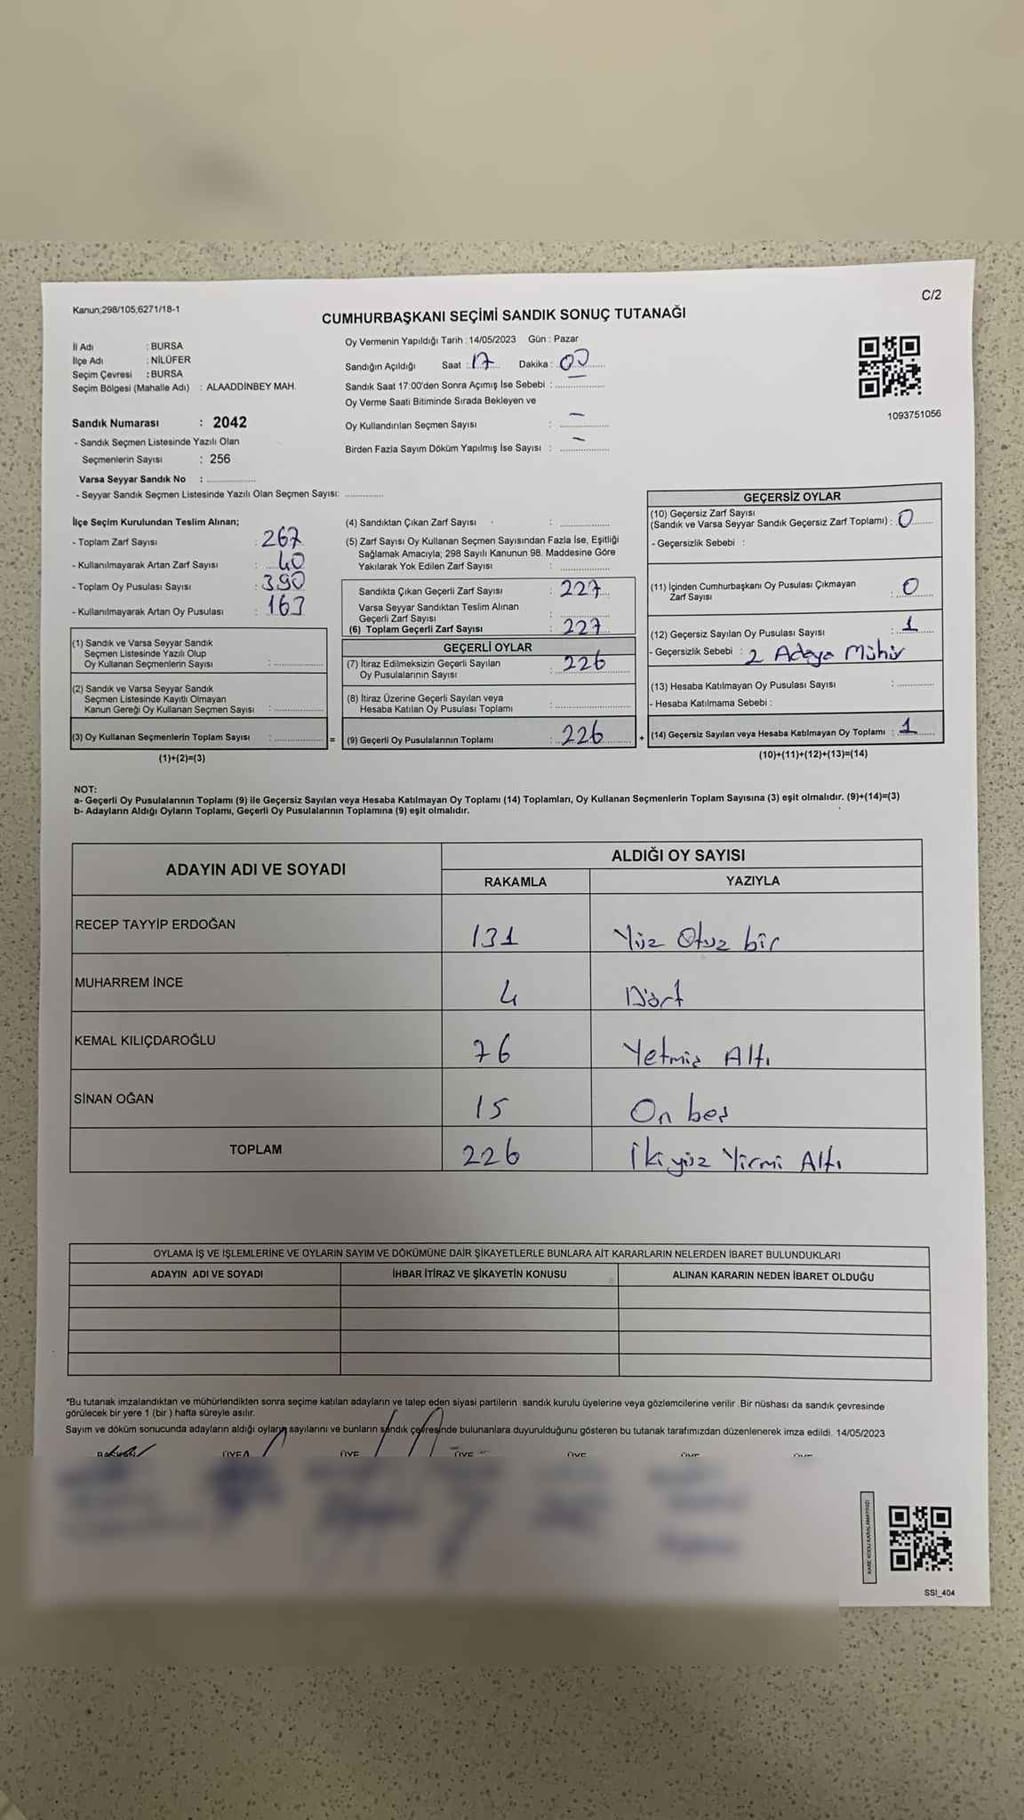 Kanun;298/105;6271/18-1
C/2
CUMHURBAŞKANI SEÇİMİ SANDIK SONUÇ TUTANAĞI
İl Adı : BURSA
İlçe Adı : NİLÜFER
Seçim Çevresi : BURSA
Seçim Bölgesi (Mahalle Adı) : ALAADDİNBEY MAH.
Sandık Numarası : 2042
- Sandık Seçmen Listesinde Yazılı Olan
Seçmenlerin Sayısı : 256
Varsa Seyyar Sandık No :
- Seyyar Sandık Seçmen Listesinde Yazılı Olan Seçmen Sayısı:
Oy Vermenin Yapıldığı Tarih : 14/05/2023 Gün : Pazar
Sandığın Açıldığı Saat : 17 Dakika : 00
Sandık Saat 17:00'den Sonra Açımış İse Sebebi :
Oy Verme Saati Bitiminde Sırada Bekleyen ve
Oy Kullandırılan Seçmen Sayısı : -
Birden Fazla Sayım Döküm Yapılmış İse Sayısı : -
1093751056
İlçe Seçim Kurulundan Teslim Alınan;
- Toplam Zarf Sayısı : 267
- Kullanılmayarak Artan Zarf Sayısı : 40
- Toplam Oy Pusulası Sayısı : 390
- Kullanılmayarak Artan Oy Pusulası : 163
(1) Sandık ve Varsa Seyyar Sandık
Seçmen Listesinde Yazılı Olup
Oy Kullanan Seçmenlerin Sayısı :
(2) Sandık ve Varsa Seyyar Sandık
Seçmen Listesinde Kayıtlı Olmayan
Kanun Gereği Oy Kullanan Seçmen Sayısı :
(3) Oy Kullanan Seçmenlerin Toplam Sayısı : =
(1)+(2)=(3)
(4) Sandıktan Çıkan Zarf Sayısı :
(5) Zarf Sayısı Oy Kullanan Seçmen Sayısından Fazla İse, Eşitliği
Sağlamak Amacıyla; 298 Sayılı Kanunun 98. Maddesine Göre
Yakılarak Yok Edilen Zarf Sayısı :
Sandıkta Çıkan Geçerli Zarf Sayısı : 227
Varsa Seyyar Sandıktan Teslim Alınan
Geçerli Zarf Sayısı :
(6) Toplam Geçerli Zarf Sayısı : 227
GEÇERLİ OYLAR
(7) İtiraz Edilmeksizin Geçerli Sayılan
Oy Pusulalarının Sayısı : 226
(8) İtiraz Üzerine Geçerli Sayılan veya
Hesaba Katılan Oy Pusulası Toplamı :
(9) Geçerli Oy Pusulalarının Toplamı : 226 +
GEÇERSİZ OYLAR
(10) Geçersiz Zarf Sayısı
(Sandık ve Varsa Seyyar Sandık Geçersiz Zarf Toplamı) : 0
- Geçersizlik Sebebi :
(11) İçinden Cumhurbaşkanı Oy Pusulası Çıkmayan
Zarf Sayısı : 0
(12) Geçersiz Sayılan Oy Pusulası Sayısı : 1
- Geçersizlik Sebebi : 2 Adaya Mühür
(13) Hesaba Katılmayan Oy Pusulası Sayısı :
- Hesaba Katılmama Sebebi :
(14) Geçersiz Sayılan veya Hesaba Katılmayan Oy Toplamı : 1
(10)+(11)+(12)+(13)=(14)
NOT:
a- Geçerli Oy Pusulalarının Toplamı (9) ile Geçersiz Sayılan veya Hesaba Katılmayan Oy Toplamı (14) Toplamları, Oy Kullanan Seçmenlerin Toplam Sayısına (3) eşit olmalıdır. (9)+(14)=(3)
b- Adayların Aldığı Oyların Toplamı, Geçerli Oy Pusulalarının Toplamına (9) eşit olmalıdır.
ADAYIN ADI VE SOYADI
ALDIĞI OY SAYISI
RAKAMLA YAZIYLA
RECEP TAYYİP ERDOĞAN 131 Yüz Otuz bir
MUHARREM İNCE 4 Dört
KEMAL KILIÇDAROĞLU 76 Yetmiş Altı
SİNAN OĞAN 15 On beş
TOPLAM 226 İkiyüz Yirmi Altı
OYLAMA İŞ VE İŞLEMLERİNE VE OYLARIN SAYIM VE DÖKÜMÜNE DAİR ŞİKAYETLERLE BUNLARA AİT KARARLARIN NELERDEN İBARET BULUNDUKLARI
ADAYIN ADI VE SOYADI İHBAR İTİRAZ VE ŞİKAYETİN KONUSU ALINAN KARARIN NEDEN İBARET OLDUĞU
*Bu tutanak imzalandıktan ve mühürlendikten sonra seçime katılan adayların ve talep eden siyasi partilerin sandık kurulu üyelerine veya gözlemcilerine verilir. Bir nüshası da sandık çevresinde
görülecek bir yere 1 (bir ) hafta süreyle asılır.
Sayım ve döküm sonucunda adayların aldığı oyların sayılarını ve bunların sandık çevresinde bulunanlara duyurulduğunu gösteren bu tutanak tarafımızdan düzenlenerek imza edildi. 14/05/2023
SSI_404